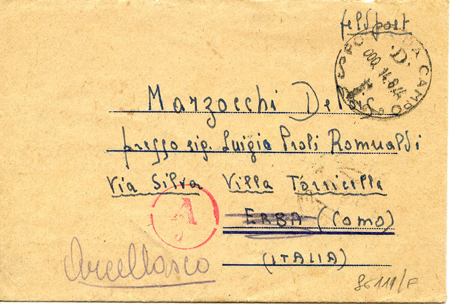 feldpost
POSTA DA CAMPO
D
Marzocchi Del
presso sig. Luigia Proli Romualdi
Via Silva Villa Torricelle
ERBA (Como)
A
Arcellasco
(ITALIA)